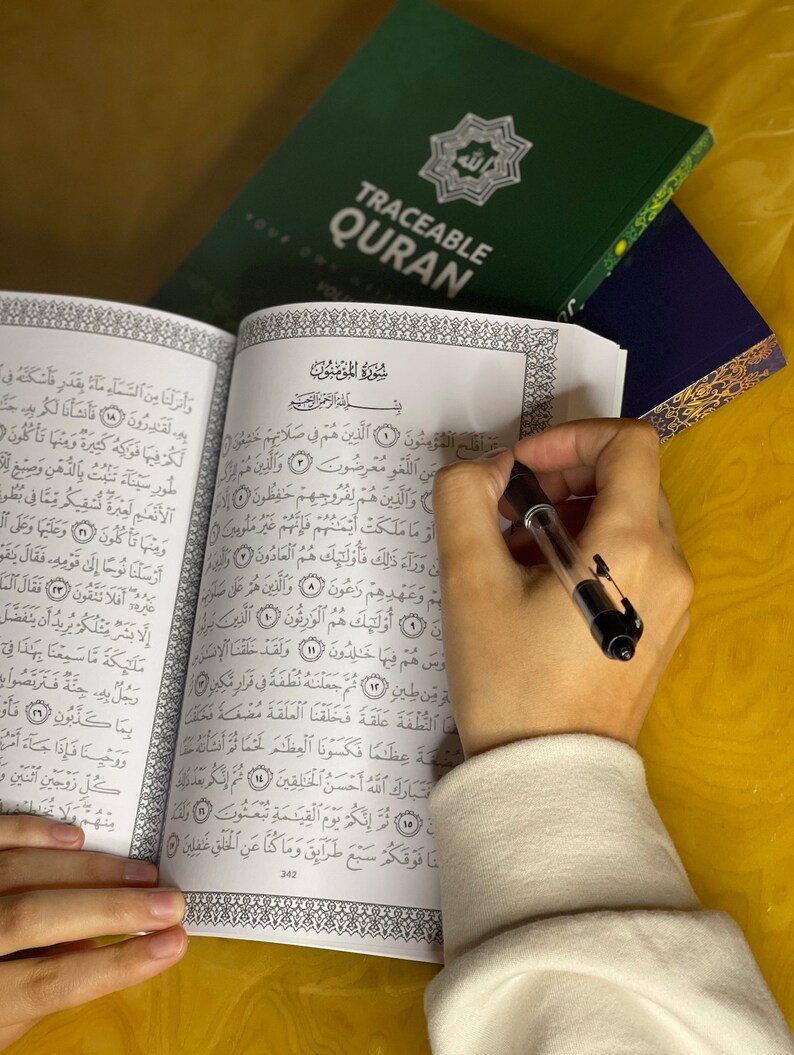 TRACEABLE
QURAN
YOUR OWN
الله
سُورَةُ المُؤْمِنُون
بِسْمِ ٱللَّهِ ٱلرَّحْمَٰنِ ٱلرَّحِيمِ
قَدْ أَفْلَحَ ٱلْمُؤْمِنُونَ ١ ٱلَّذِينَ هُمْ فِى صَلَاتِهِمْ خَٰشِعُونَ
عَنِ ٱللَّغْوِ مُعْرِضُونَ ٣ وَٱلَّذِينَ هُمْ
وَٱلَّذِينَ هُمْ لِفُرُوجِهِمْ حَٰفِظُونَ ٥ إِلَّا
أَوْ مَا مَلَكَتْ أَيْمَٰنُهُمْ فَإِنَّهُمْ غَيْرُ مَلُومِينَ ٦
وَرَآءَ ذَٰلِكَ فَأُو۟لَٰٓئِكَ هُمُ ٱلْعَادُونَ ٧ وَٱلَّذِينَ
وَعَهْدِهِمْ رَٰعُونَ ٨ وَٱلَّذِينَ هُمْ عَلَىٰ صَلَوَٰتِهِمْ
٩ أُو۟لَٰٓئِكَ هُمُ ٱلْوَٰرِثُونَ ١٠ ٱلَّذِينَ يَرِثُونَ
هُمْ فِيهَا خَٰلِدُونَ ١١ وَلَقَدْ خَلَقْنَا ٱلْإِنسَٰنَ مِن
مِّن طِينٍ ١٢ ثُمَّ جَعَلْنَٰهُ نُطْفَةً فِى قَرَارٍ مَّكِينٍ ١٣
ٱلنُّطْفَةَ عَلَقَةً فَخَلَقْنَا ٱلْعَلَقَةَ مُضْغَةً فَخَلَقْنَا
ٱلْمُضْغَةَ عِظَٰمًا فَكَسَوْنَا ٱلْعِظَٰمَ لَحْمًا ثُمَّ أَنشَأْنَٰهُ خَلْقًا
فَتَبَارَكَ ٱللَّهُ أَحْسَنُ ٱلْخَٰلِقِينَ ١٤ ثُمَّ إِنَّكُم بَعْدَ ذَٰلِكَ
١٥ ثُمَّ إِنَّكُمْ يَوْمَ ٱلْقِيَٰمَةِ تُبْعَثُونَ ١٦ وَلَقَدْ
فَوْقَكُمْ سَبْعَ طَرَآئِقَ وَمَا كُنَّا عَنِ ٱلْخَلْقِ غَٰفِلِينَ ١٧
342
وَأَنزَلْنَا مِنَ ٱلسَّمَآءِ مَآءًۢ بِقَدَرٍ فَأَسْكَنَّٰهُ فِى
بِهِۦ لَقَٰدِرُونَ ١٨ فَأَنشَأْنَا لَكُم بِهِۦ جَنَّٰتٍ
لَّكُمْ فِيهَا فَوَٰكِهُ كَثِيرَةٌ وَمِنْهَا تَأْكُلُونَ
طُورِ سَيْنَآءَ تَنۢبُتُ بِٱلدُّهْنِ وَصِبْغٍ
ٱلْأَنْعَٰمِ لَعِبْرَةً نُّسْقِيكُم مِّمَّا فِى بُطُونِهَا
وَمِنْهَا تَأْكُلُونَ ٢١ وَعَلَيْهَا وَعَلَى
أَرْسَلْنَا نُوحًا إِلَىٰ قَوْمِهِۦ فَقَالَ يَٰقَوْمِ
غَيْرُهُۥٓ أَفَلَا تَتَّقُونَ ٢٣ فَقَالَ
إِلَّا بَشَرٌ مِّثْلُكُمْ يُرِيدُ أَن يَتَفَضَّلَ
مَلَٰٓئِكَةً مَّا سَمِعْنَا بِهَٰذَا فِىٓ
رَجُلٌۢ بِهِۦ جِنَّةٌ فَتَرَبَّصُوا۟
بِمَا كَذَّبُونِ ٢٦
وَوَحْيِنَا فَإِذَا جَآءَ أَمْرُنَا
كُلٍّ زَوْجَيْنِ ٱثْنَيْنِ
مِنْهُمْ وَلَا